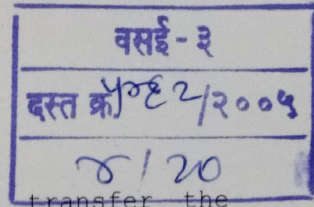 वसई - ३
दस्त क्र. /२००५
४ / 20
transfer the